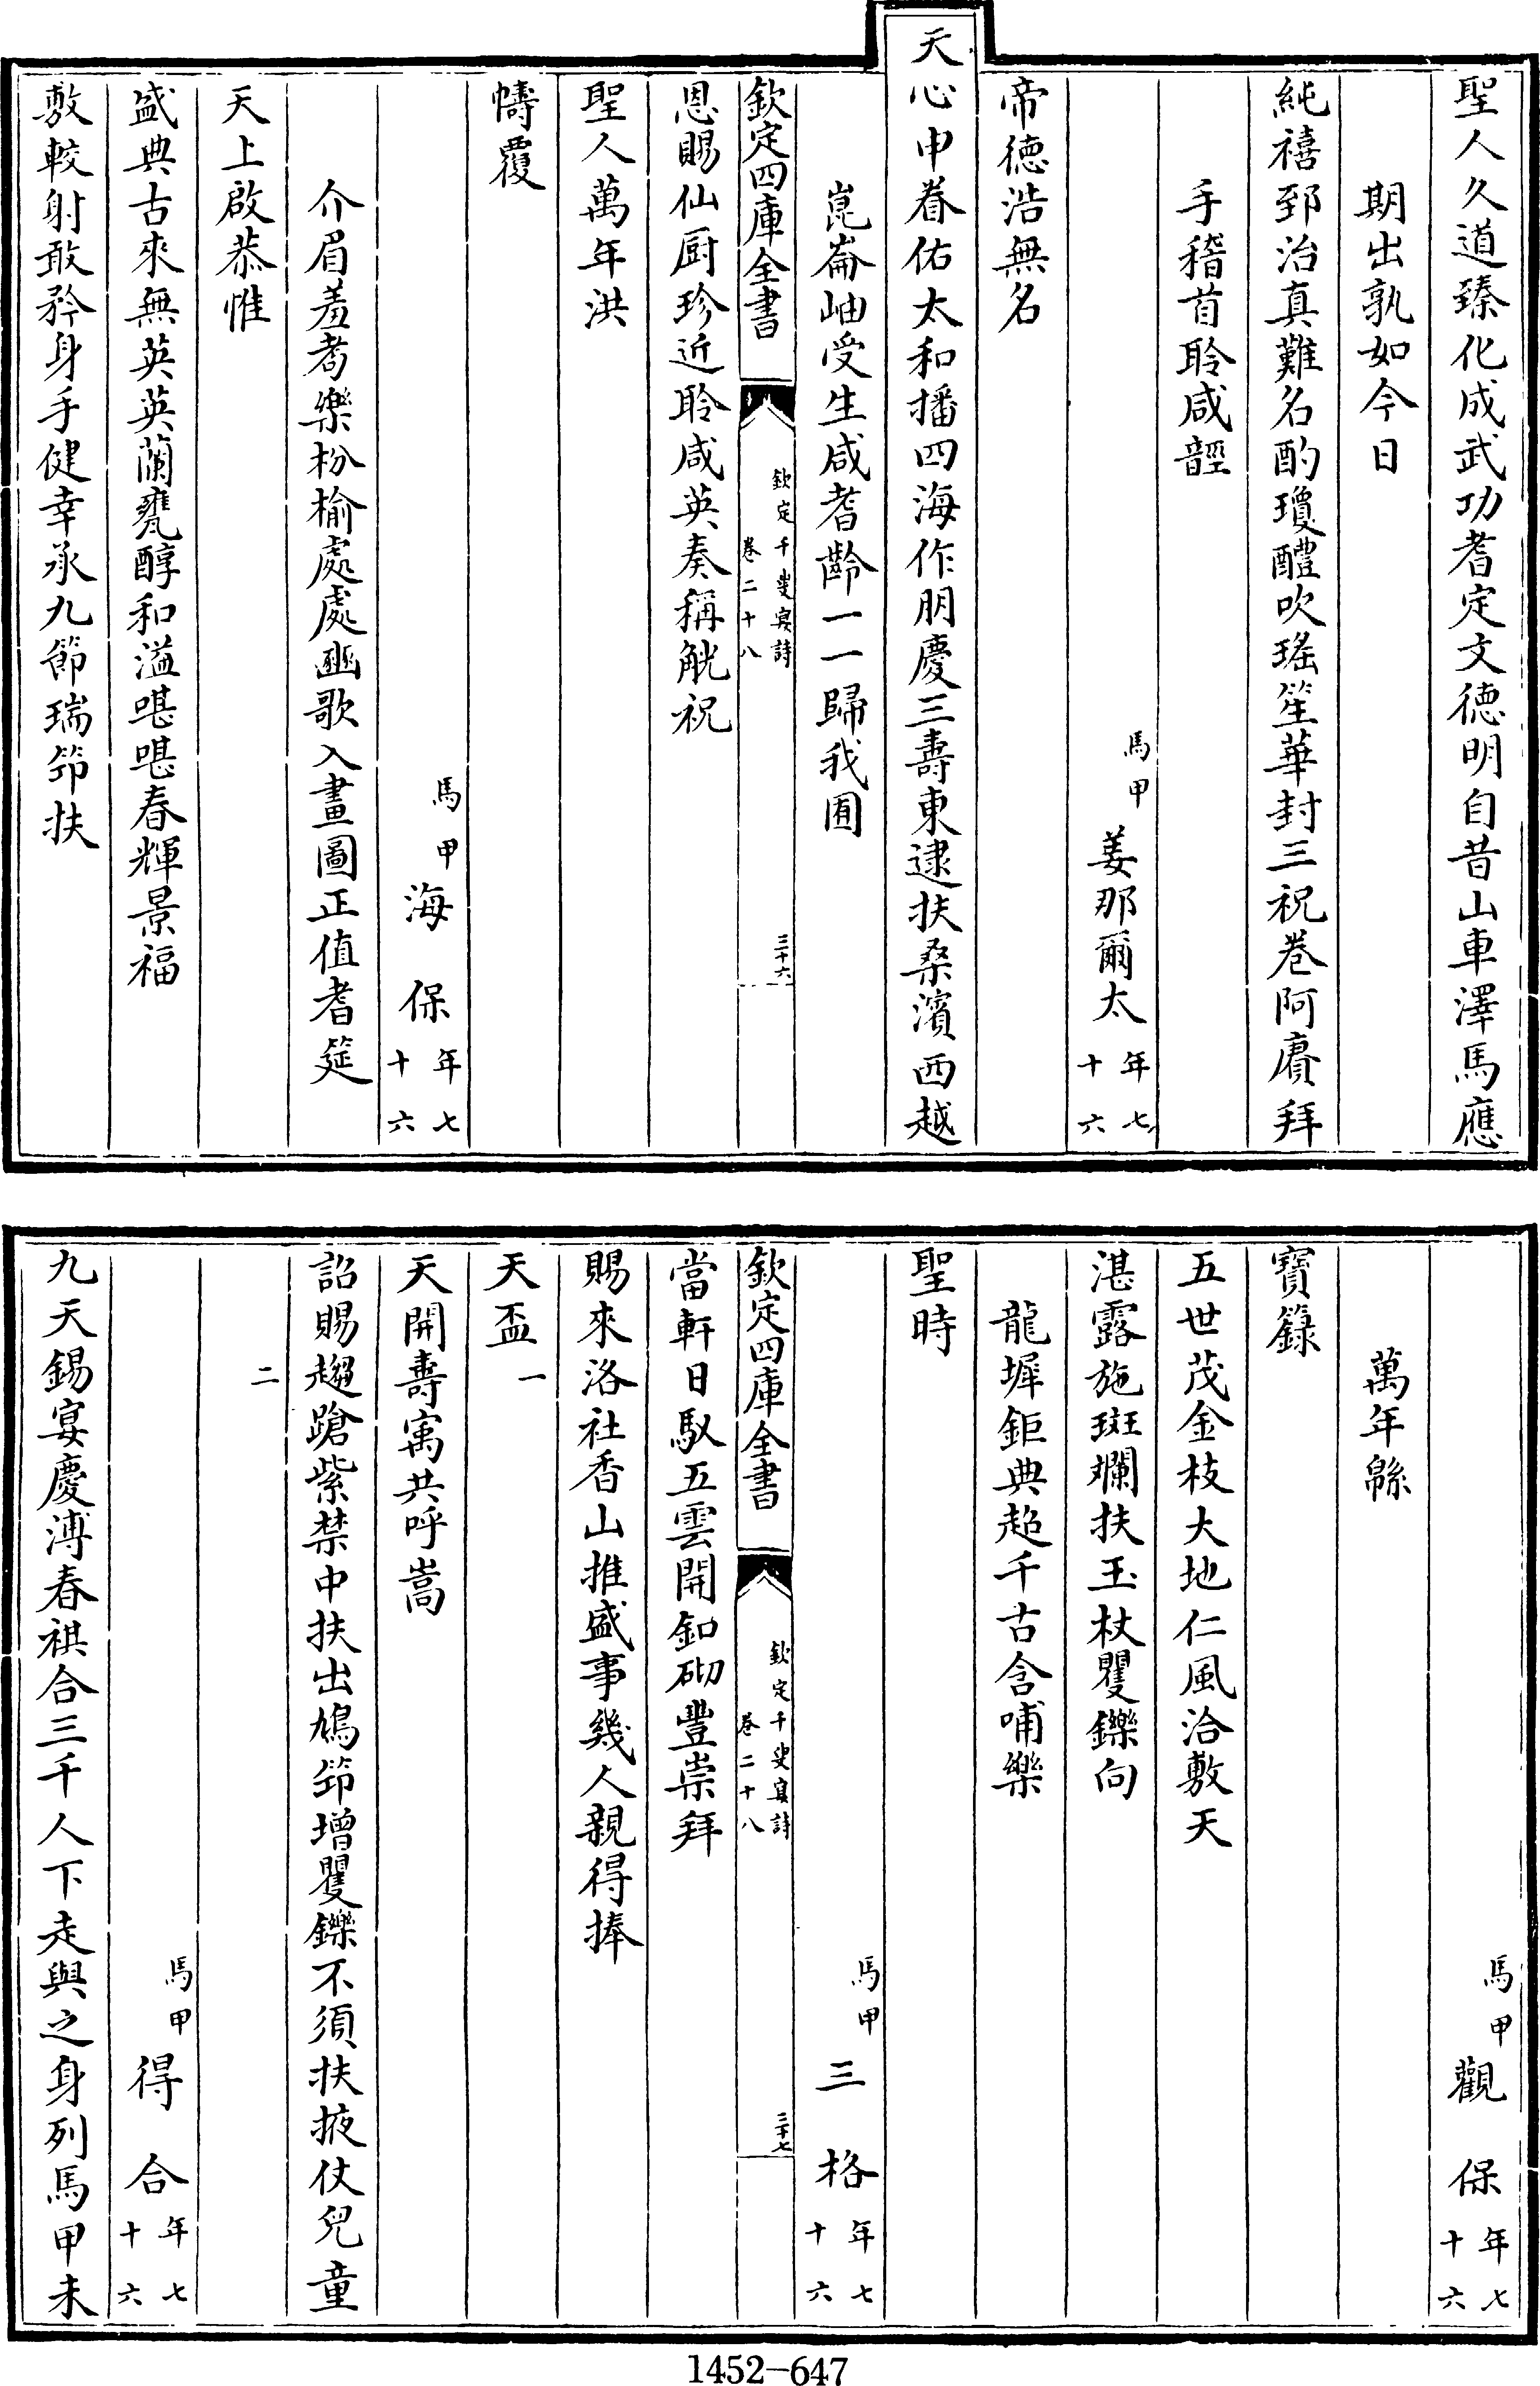 聖人久道臻化成武功耆定文德明自昔山車澤馬應
期出孰如今日
純禧郅治真難名酌瓊醴吹瑤笙華封三祝卷阿賡拜
手稽首聆咸韺
馬甲姜那爾太年七十六
帝德浩無名
天心申眷佑太和播四海作朋慶三壽東逮扶桑濱西越
崑崙岫受生咸耆齡一一歸我囿
欽定四庫全書
欽定千叟宴詩
卷二十八
三十六
恩賜仙厨珍近聆咸英奏稱觥祝
聖人萬年洪
幬覆
馬甲海保年七十六
介眉羞耉樂枌榆處處豳歌入畫圖正值耆筵
天上啟恭惟
盛典古來無英英蘭甕醇和溢喈喈春輝景福
敷較射敢矜身手健幸承九節瑞笻扶
馬甲觀保年七十六
萬年緜
寶籙
五世茂金枝大地仁風洽敷天
湛露施斑斕扶玉杖矍鑠向
龍墀鉅典超千古含哺樂
聖時
馬甲三格年七十六
欽定四庫全書
欽定千叟宴詩
卷二十八
三十七
當軒日馭五雲開釦砌豐崇拜
賜來洛社香山推盛事幾人親得捧
天盃一
天開壽寓共呼嵩
詔賜趨蹌紫禁中扶出鳩笻增矍鑠不須扶掖仗兒童
二
馬甲得合年七十六
九天錫宴慶溥春祺合三千人下走與之身列馬甲未
1452-647